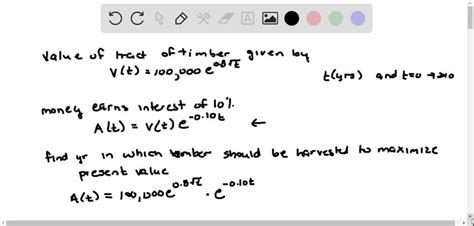 value of tract of timber given by
V(t) = 100,000 e^0.8√t t(yrs) and t=0 → 2010
money earns interest of 10%.
A(t) = V(t) e^-0.10t ←
find yr in which timber should be harvested to maximize
present value
A(t) = 100,000 e^0.8√t · e^-0.10t